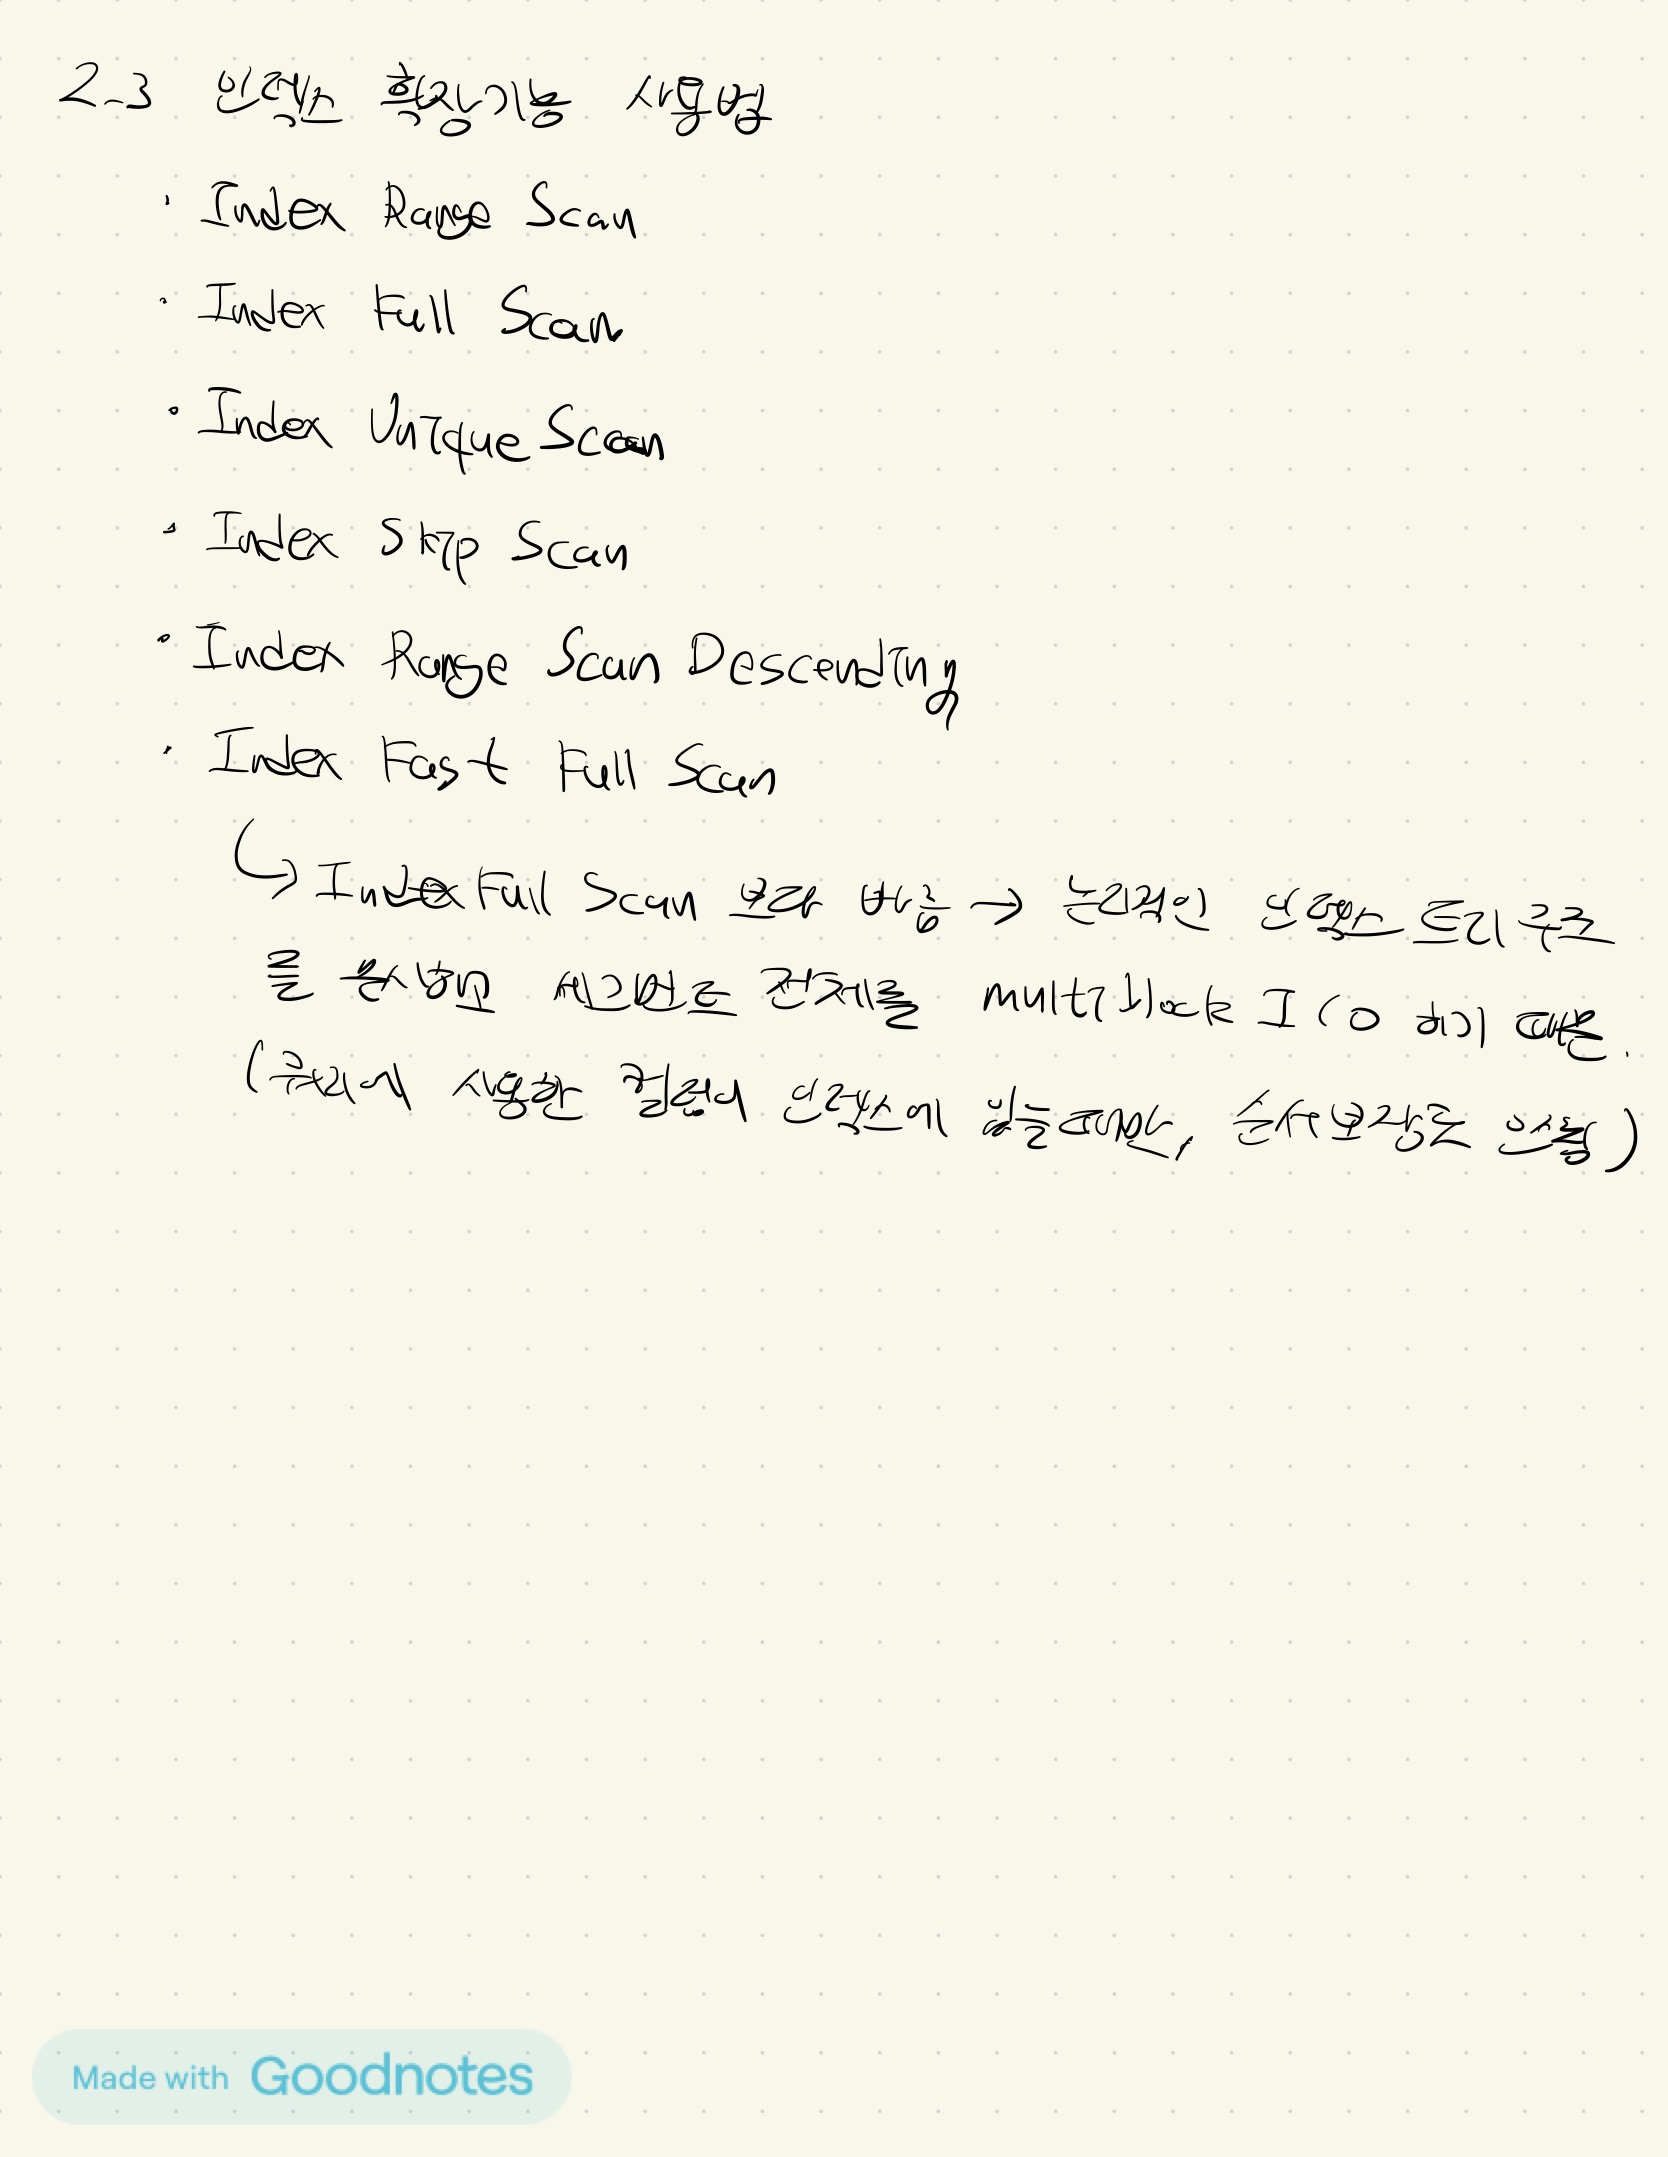 2.3 인덱스 확장기능 사용법
· Index Range Scan
· Index Full Scan
· Index Unique Scan
· Index Skip Scan
· Index Range Scan Descending
· Index Fast Full Scan
↳ Index Full Scan 보다 빠름 → 논리적인 인덱스 트리 구조
를 무시하고 세그먼트 전체를 multi block I/O 하기 때문.
(쿼리에 사용한 컬럼이 인덱스에 있을때만, 순서보장도 안됨)
Made with Goodnotes